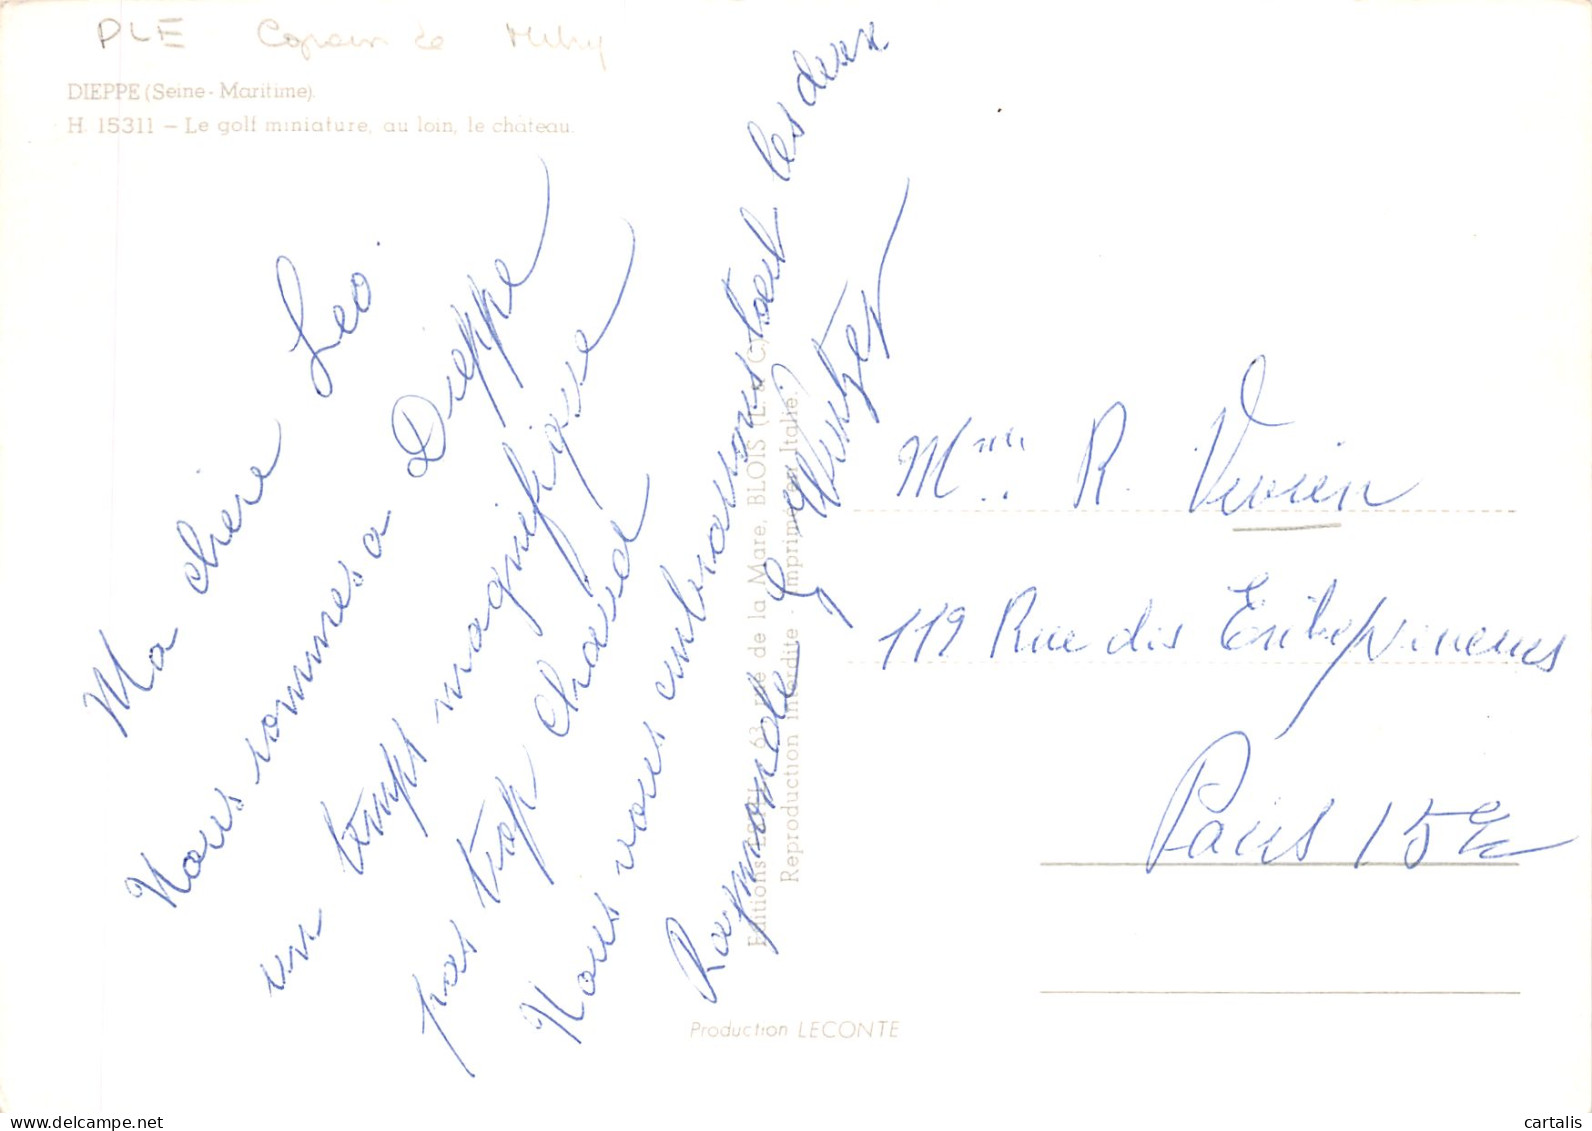 PLE Copain de
DIEPPE (Seine-Maritime).
H 15311 – Le golf miniature, au loin, le château.
Ma chère Leo.
Nous sommes a Dieppe
un temps magnifique
pas trop chaud
Nous vous embrassons tout les deux
Raymonde
Editions 63, rue de la Mare, BLOIS (L. & C.)
Reproduction interdite - Imprimé en Italie.
Production LECONTE
Mme R. Vivien
119 Rue des Entrepreneurs
Paris 15e
www.delcampe.net
cartalis